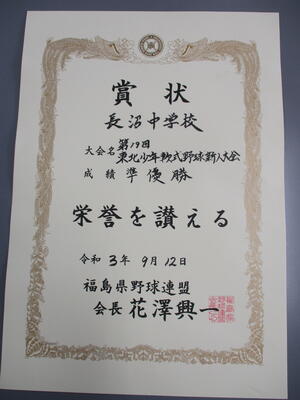 賞状
長沼中学校
大会名 第19回
東北少年軟式野球新人大会
成績 準優勝
栄誉を讃える
令和3年9月12日
福島県野球連盟
会長 花澤興一